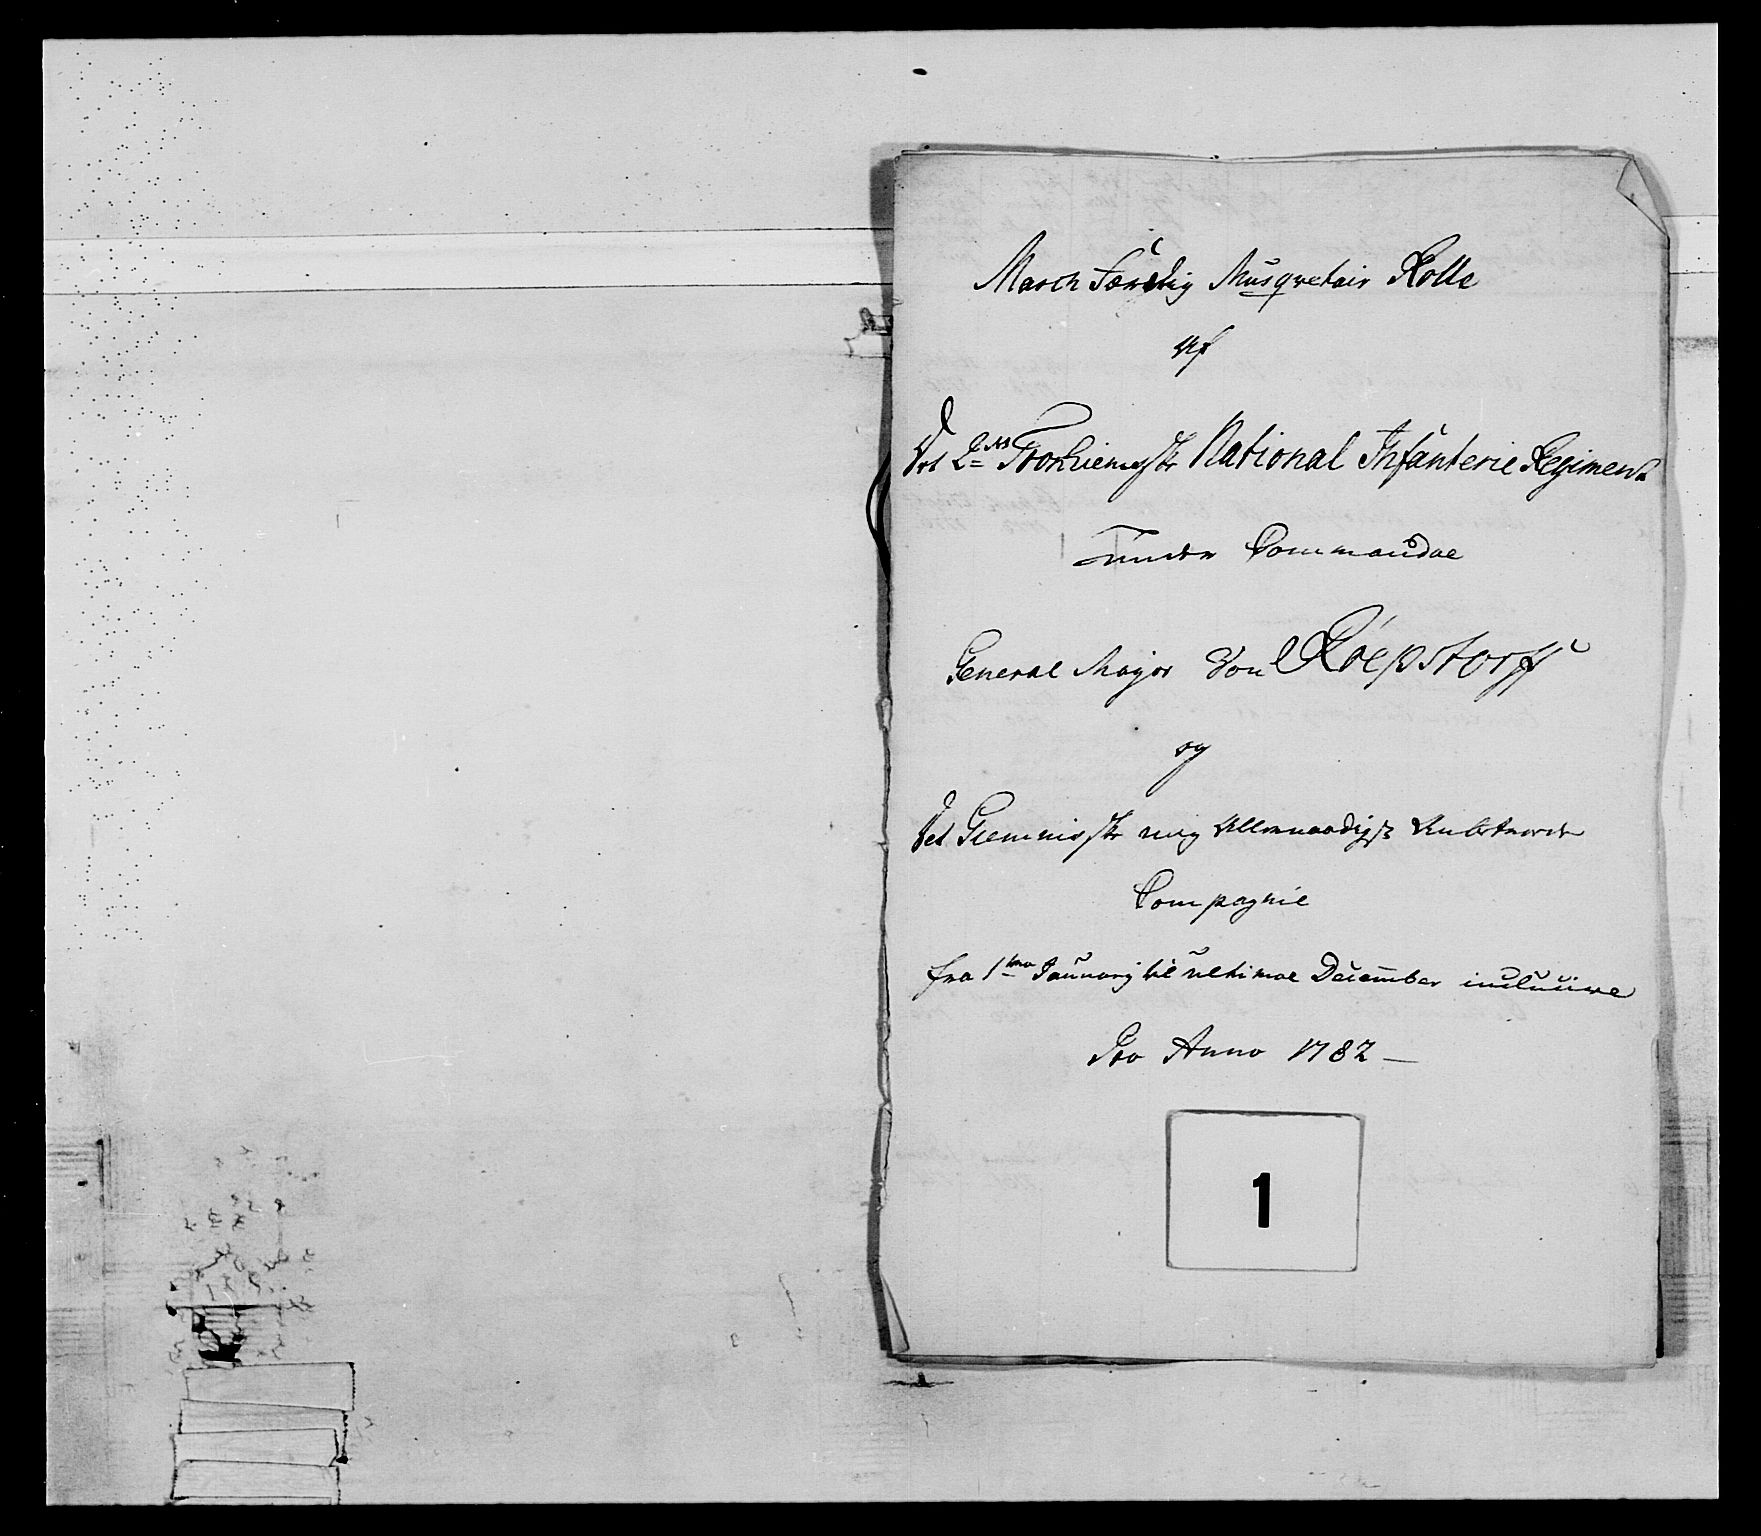 March Færdig Musqvetair Rolle
Af
Det 2det Tronhiemske National Infanterie Regiment
under Commandoe
General Major von Röepstorff
og
Det mig Allernaadigst Anbetroede
Compagnie
fra 1mo January til ultimoe December inclusive
Pro Anno 1782
1